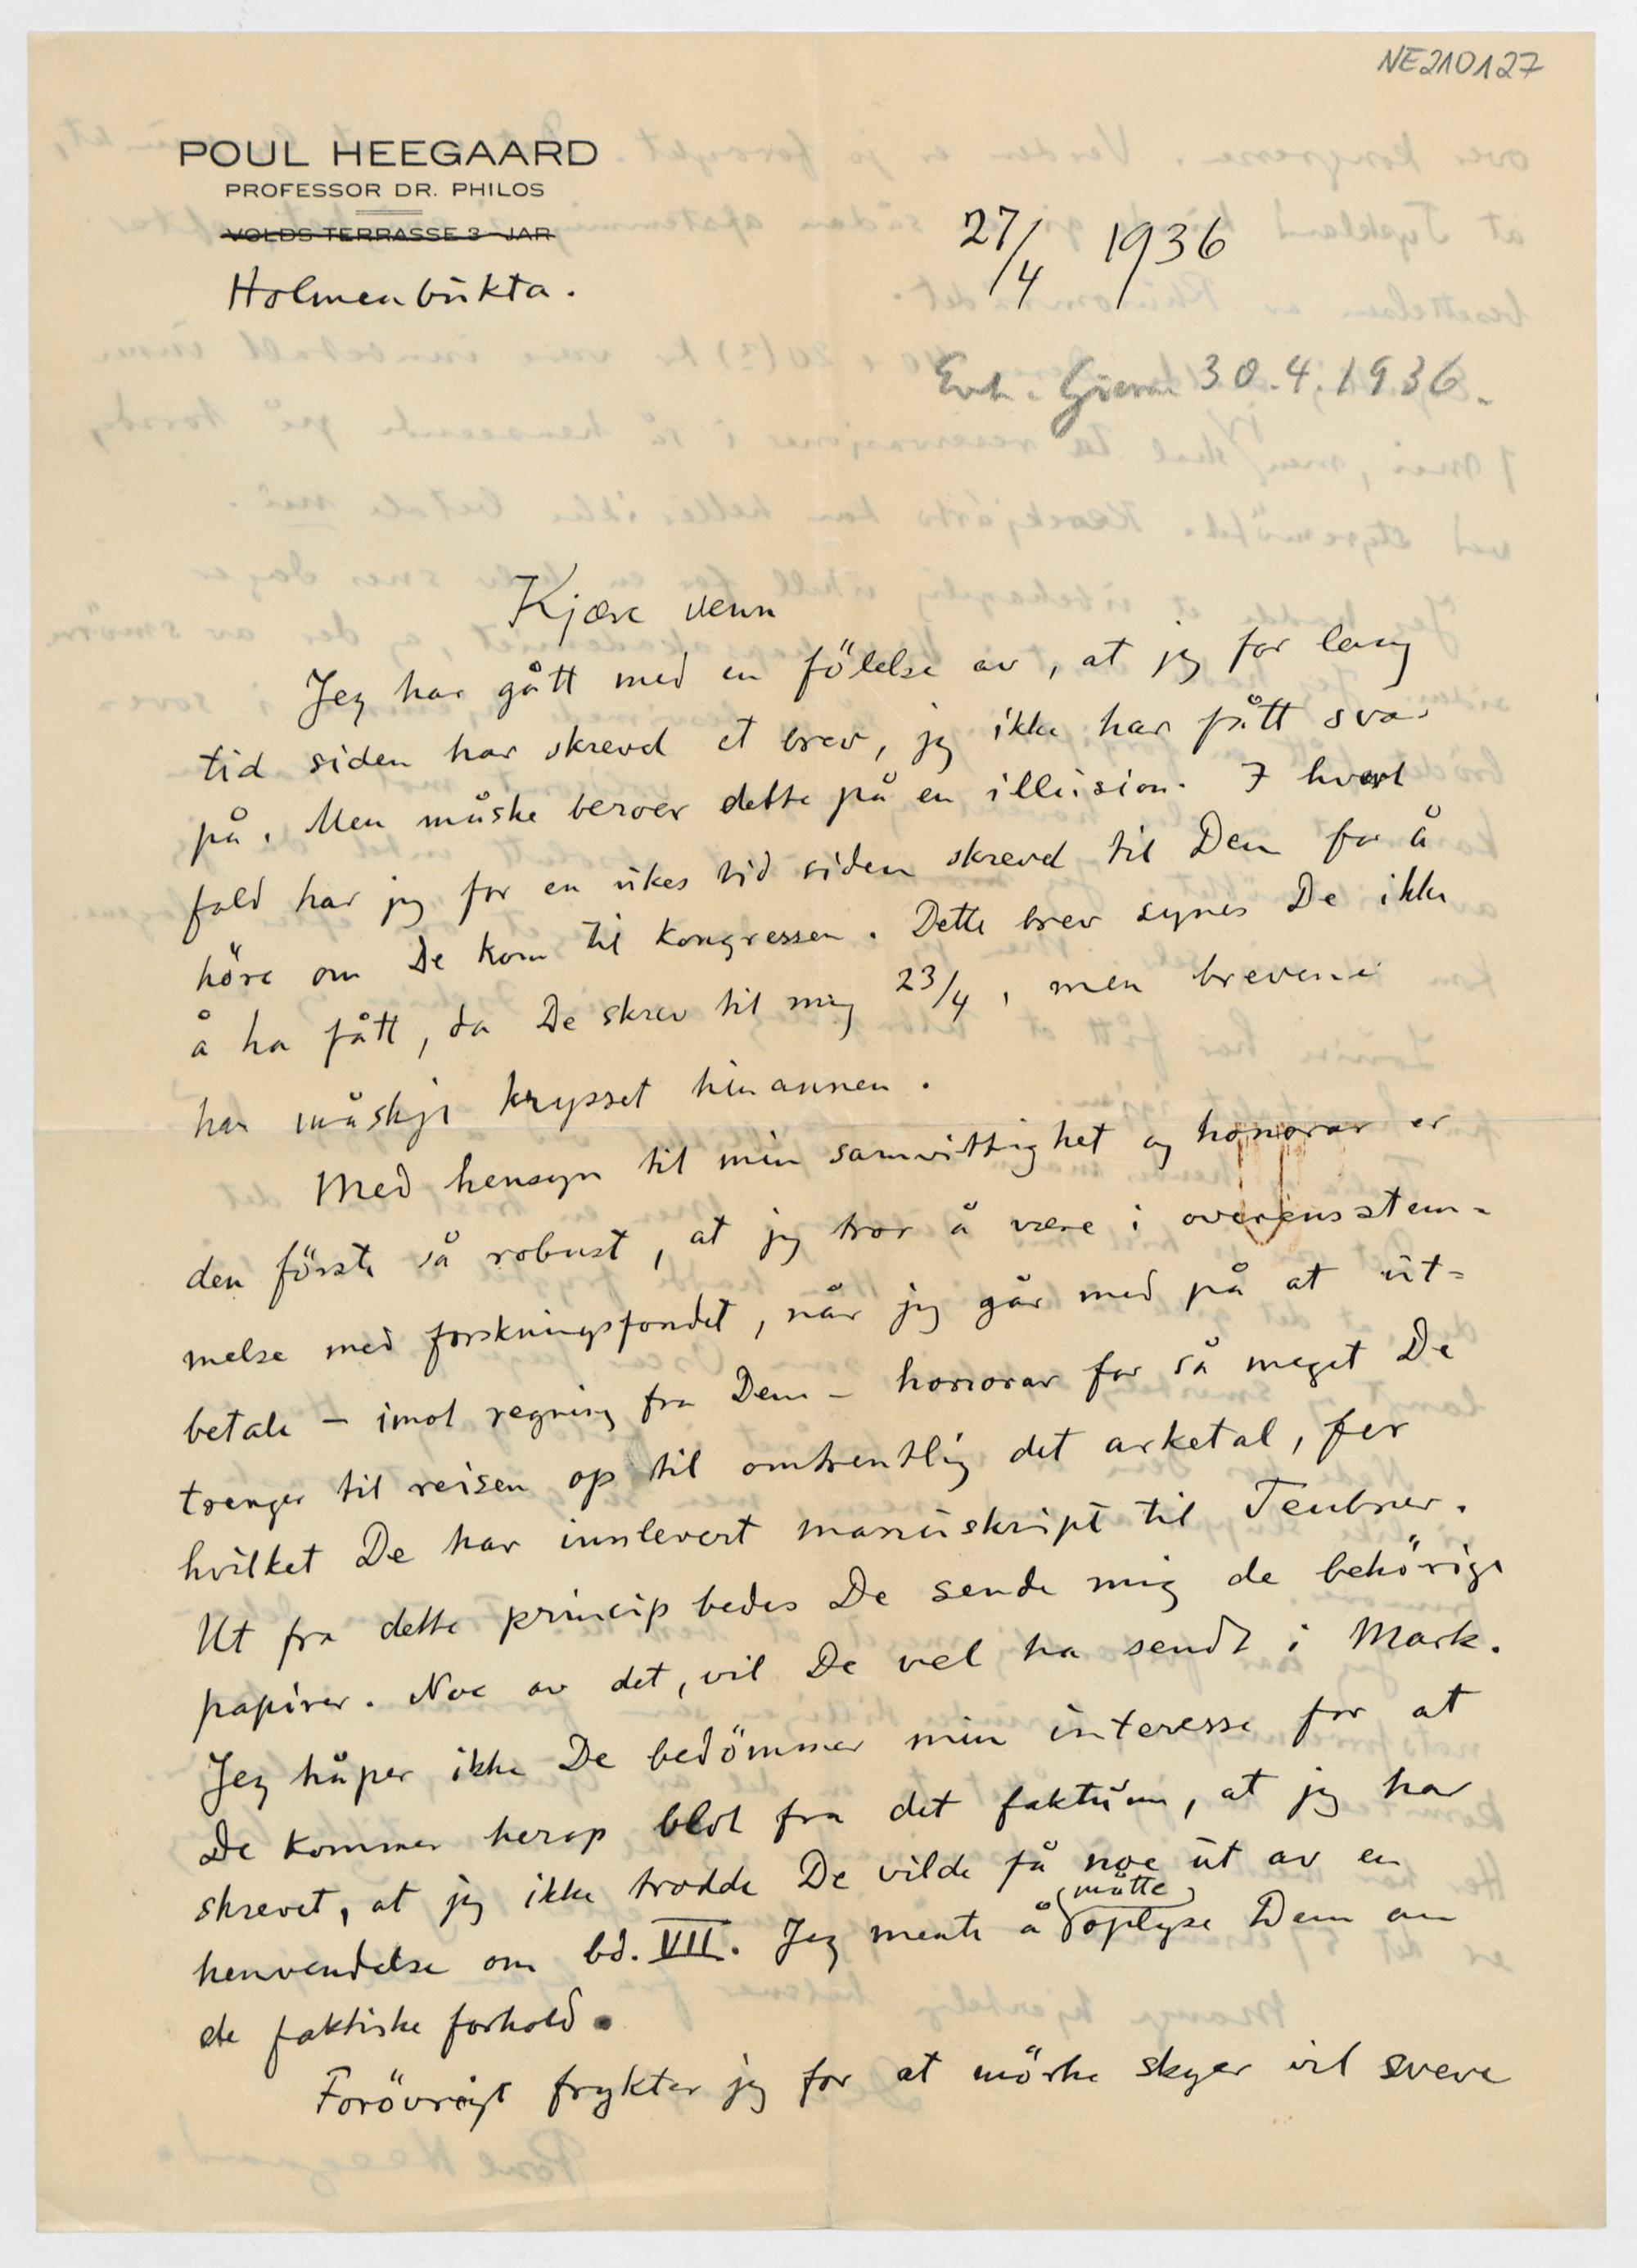 NE210127
POUL HEEGAARD
PROFESSOR DR. PHILOS
VOLDS TERRASSE 3 JAR
Holmenbukta.
27/4 1936
30.4.1936.
Kjære venn
Jeg har gått med en fölelse av, at jeg for lang
tid siden har skrevd et brev, jeg ikke har fått svar
på. Men måske beroer dette på en illusion. I hvert
fald har jeg for en ukes tid siden skrevd til Dem for å
höre om De kom til kongressen. Dette brev synes De ikke
å ha fått, da De skrev til mig 23/4, men brevene
har måskje krysset hinannen.
Med hensyn til min samvittighet og honorar er
den förste så robust, at jeg tror å være i overensstem-
melse med forskningsfondet, når jeg går med på at ut-
betale - imot regning fra Dem - honorar for så meget De
trenger til reisen op til omtrentlig det arketal, for
hvilket De har innlevert manuskript til Teubner.
Ut fra dette princip bedes De sende mig de behörige
papirer. Noe av det, vil De vel ha sendt i Mark.
Jeg håper ikke De bedömmer min interesse for at
De kommer herop blot fra det faktum, at jeg har
skrevet, at jeg ikke trodde De vilde få noe ut av en
henvendelse om bd. VII. Jeg mente å (måtte) oplyse Dem om
de faktiske forhold.
Forövrigt frykter jeg for at mörke skyer vil sveve